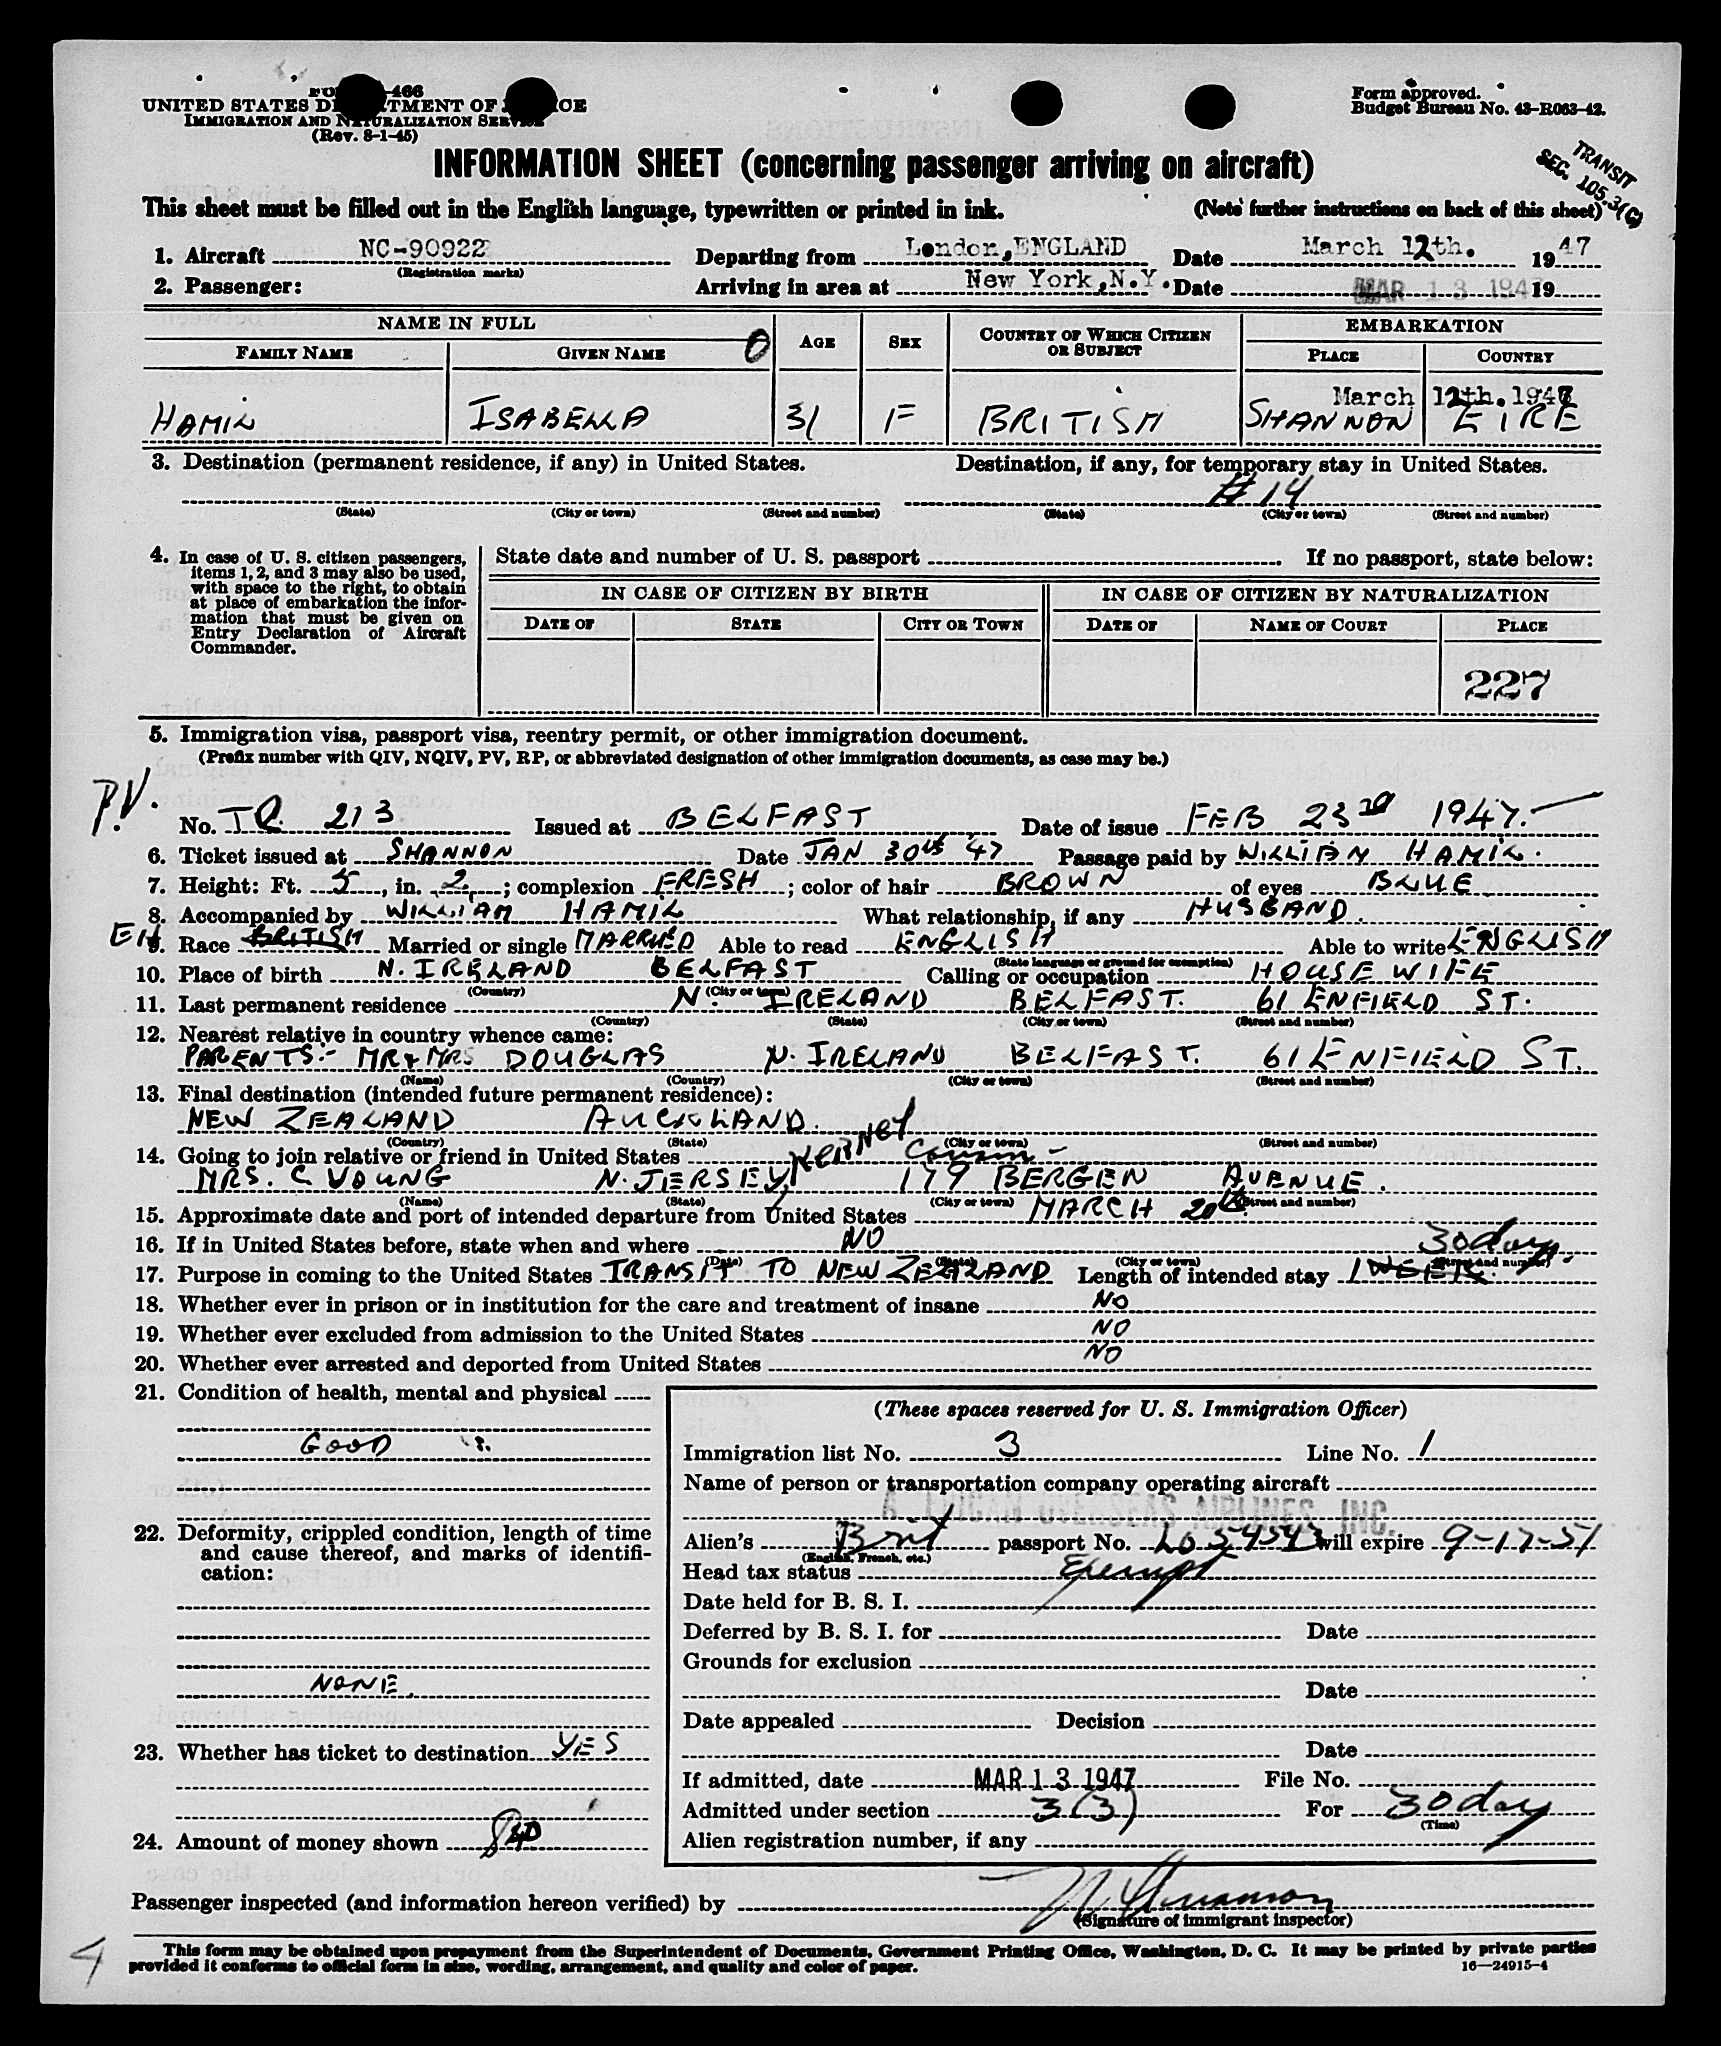 UNITED STATES OF
IMMIGRATION AND NATURALIZATION SERVICE
(Rev. 8-1-45)
Form approved.
Budget Bureau No. 43-R063-42.
TRANSIT
SEC. 105.3(C)
INFORMATION SHEET (concerning passenger arriving on aircraft)
This sheet must be filled out in the English language, typewritten or printed in ink. (Note further instructions on back of this sheet)
1. Aircraft NC-90922 Departing from London, ENGLAND Date March 12th. 1947
(Registration marks)
2. Passenger: Arriving in area at New York, N.Y. Date MAR 13 194 19
NAME IN FULL EMBARKATION
FAMILY NAME GIVEN NAME AGE SEX COUNTRY OF WHICH CITIZEN OR SUBJECT PLACE COUNTRY
March 12th. 1947
HAMIL ISABELLA 31 F BRITISH SHANNON EIRE
3. Destination (permanent residence, if any) in United States. Destination, if any, for temporary stay in United States.
# 14
(State) (City or town) (Street and number) (State) (City or town) (Street and number)
4. In case of U. S. citizen passengers, items 1, 2, and 3 may also be used, with space to the right, to obtain at place of embarkation the information that must be given on Entry Declaration of Aircraft Commander.
State date and number of U. S. passport If no passport, state below:
IN CASE OF CITIZEN BY BIRTH IN CASE OF CITIZEN BY NATURALIZATION
DATE OF STATE CITY OR TOWN DATE OF NAME OF COURT PLACE
227
5. Immigration visa, passport visa, reentry permit, or other immigration document.
(Prefix number with QIV, NQIV, PV, RP, or abbreviated designation of other immigration documents, as case may be.)
P.V.
No. 213 Issued at BELFAST Date of issue FEB 23rd 1947.
6. Ticket issued at SHANNON Date JAN 30th 47 Passage paid by WILLIAM HAMIL.
7. Height: Ft. 5, in. 2; complexion FRESH; color of hair BROWN of eyes BLUE
8. Accompanied by WILLIAM HAMIL What relationship, if any HUSBAND.
9. Race BRITISH Married or single MARRIED Able to read ENGLISH Able to write ENGLISH
(State language or ground for exemption)
10. Place of birth N. IRELAND BELFAST Calling or occupation HOUSE WIFE
(Country) (City or town)
11. Last permanent residence N. IRELAND BELFAST. 61 ENFIELD ST.
(Country) (State) (City or town) (Street and number)
12. Nearest relative in country whence came:
PARENTS:- MR & MRS DOUGLAS N. IRELAND BELFAST. 61 ENFIELD ST.
(Name) (Country) (City or town) (Street and number)
13. Final destination (intended future permanent residence):
NEW ZEALAND AUCKLAND.
(Country) (State) (City or town) (Street and number)
14. Going to join relative or friend in United States Cousin -
MRS. C YOUNG N. JERSEY, 179 BERGEN AVENUE.
(Name) (State) (City or town) (Street and number)
15. Approximate date and port of intended departure from United States MARCH 20th.
16. If in United States before, state when and where NO
(Date) (State) (City or town) (Street and number)
30 days.
17. Purpose in coming to the United States TRANSIT TO NEW ZEALAND Length of intended stay 1 WEEK.
18. Whether ever in prison or in institution for the care and treatment of insane NO
19. Whether ever excluded from admission to the United States NO
20. Whether ever arrested and deported from United States NO
21. Condition of health, mental and physical
GOOD
22. Deformity, crippled condition, length of time and cause thereof, and marks of identification:
NONE.
23. Whether has ticket to destination YES
24. Amount of money shown $40
(These spaces reserved for U. S. Immigration Officer)
Immigration list No. 3 Line No. 1
Name of person or transportation company operating aircraft
OVERSEAS AIRLINES, INC.
Alien's Brit passport No. LO 59543 will expire 9-17-51
(English, French, etc.)
Head tax status Exempt
Date held for B. S. I.
Deferred by B. S. I. for Date
Grounds for exclusion
Date
Date appealed Decision
Date
If admitted, date MAR 13 1947 File No.
Admitted under section 3(3) For 30 day
(Time)
Alien registration number, if any
Passenger inspected (and information hereon verified) by
(Signature of immigrant inspector)
4
This form may be obtained upon prepayment from the Superintendent of Documents, Government Printing Office, Washington, D. C. It may be printed by private parties
provided it conforms to official form in size, wording, arrangement, and quality and color of paper. 16—24915-4